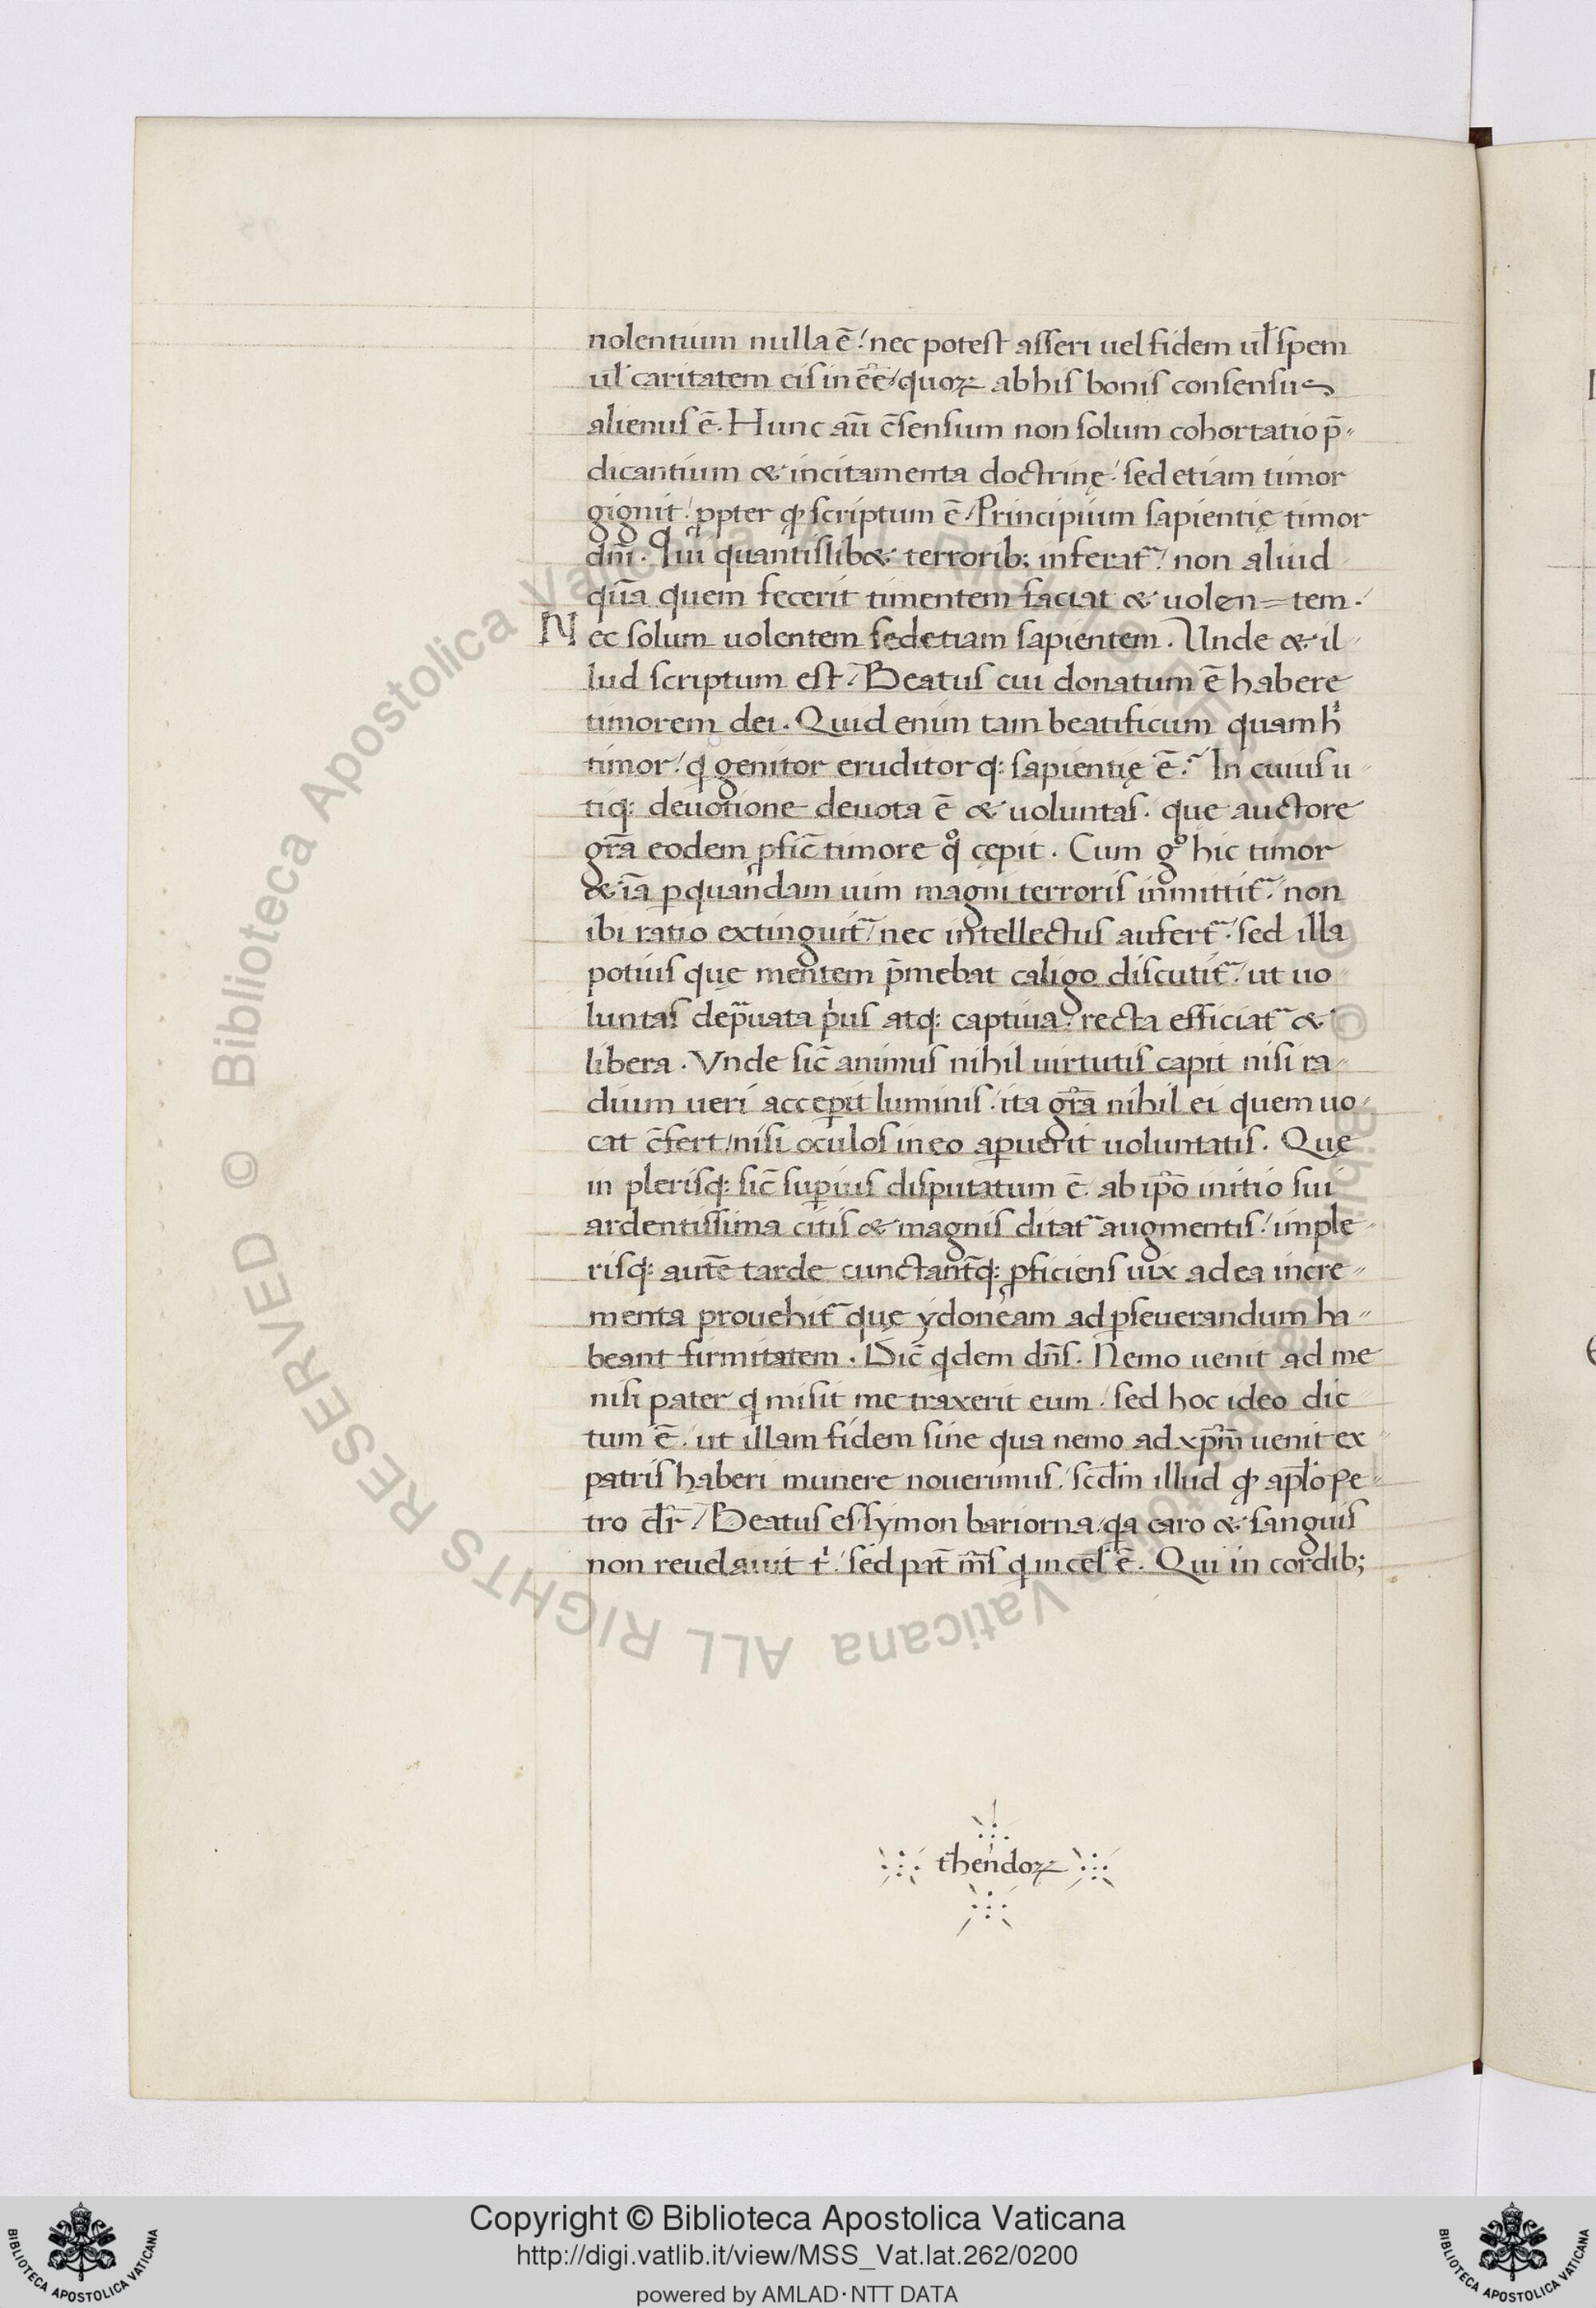 nolentium nulla ē / nec potest asseri uel fidem ul̄ spem
ul̄ caritatem eis inēē / quoꝝ ab his bonis consensus
alienus ē. Hunc aū c̄sensum non solum cohortatio p̄-
dicantium & incitamenta doctrinę / sed etiam timor
gignit / ꝓpter ꝙ scriptum ē / Principium sapientię timor
dn̄i. Qui quantislib& terrorib; inferat᷑ / non aliud
qua quem fecerit timentem faciat & uolen=tem.
Nec solum uolentem sed etiam sapientem. Unde & il-
lud scriptum est / Beatus cui donatum ē habere
timorem dei. Quid enim tam beatificum quam hͥ
timor / q̇ genitor eruditorq; sapientię ē / In cuius u-
tiq; deuotione deuota ē & uoluntas. que auctore
gr̄a eodem ꝓfic̄ timore qͦ cępit. Cum gͦ hic timor
& iā ꝑ quandam uim magni terroris inmittit᷑ / non
ibi ratio extinguit᷑ / nec intellectus aufert᷑ / sed illa
potius quę mentem p̄mebat caligo discutit᷑ / ut uo-
luntas dep̄uata pͥus atq; captiua / recta efficiat᷑ &
libera. Vnde sic̄ animus nihil uirtutis capit nisi ra-
dium ueri acceperit luminis / ita gr̄a nihil ei quem uo-
cat c̄fert / nisi oculos in eo aꝑuerit uoluntatis. Quę
in plerisq; sic̄ suꝑius disputatum ē. ab ip̄o initio sui
ardentissima citis & magnis ditat᷑ augmentis / imple-
risq; autē tarde cunctant̄q; ꝓficiens uix ad ea incre-
menta prouehit᷑ quę ydoneam ad ꝑseuerandum ha-
beant firmitatem. Dic̄ q̇dem dn̄s. Nemo uenit ad me
nisi pater q̇ misit me traxerit eum / sed hoc ideo dic
tum ē / ut illam fidem sine qua nemo ad xp̄m uenit ex
patris haberi munere nouerimus / sc̄dm illud ꝙ apl̄o Pe-
tro dr̄ / Beatus es symon bariorna / q̇a caro & sanguis
non reuelauit tͥ / sed pat̄ m̄s q̇ in cel̄ ē. Qui in cordib;
thendoꝝ
© Biblioteca Apostolica Vaticana ALL RIGHTS RESERVED
Copyright © Biblioteca Apostolica Vaticana
http://digi.vatlib.it/view/MSS_Vat.lat.262/0200
powered by AMLAD·NTT DATA
BIBLIOTECA APOSTOLICA VATICANA
BIBLIOTECA APOSTOLICA VATICANA